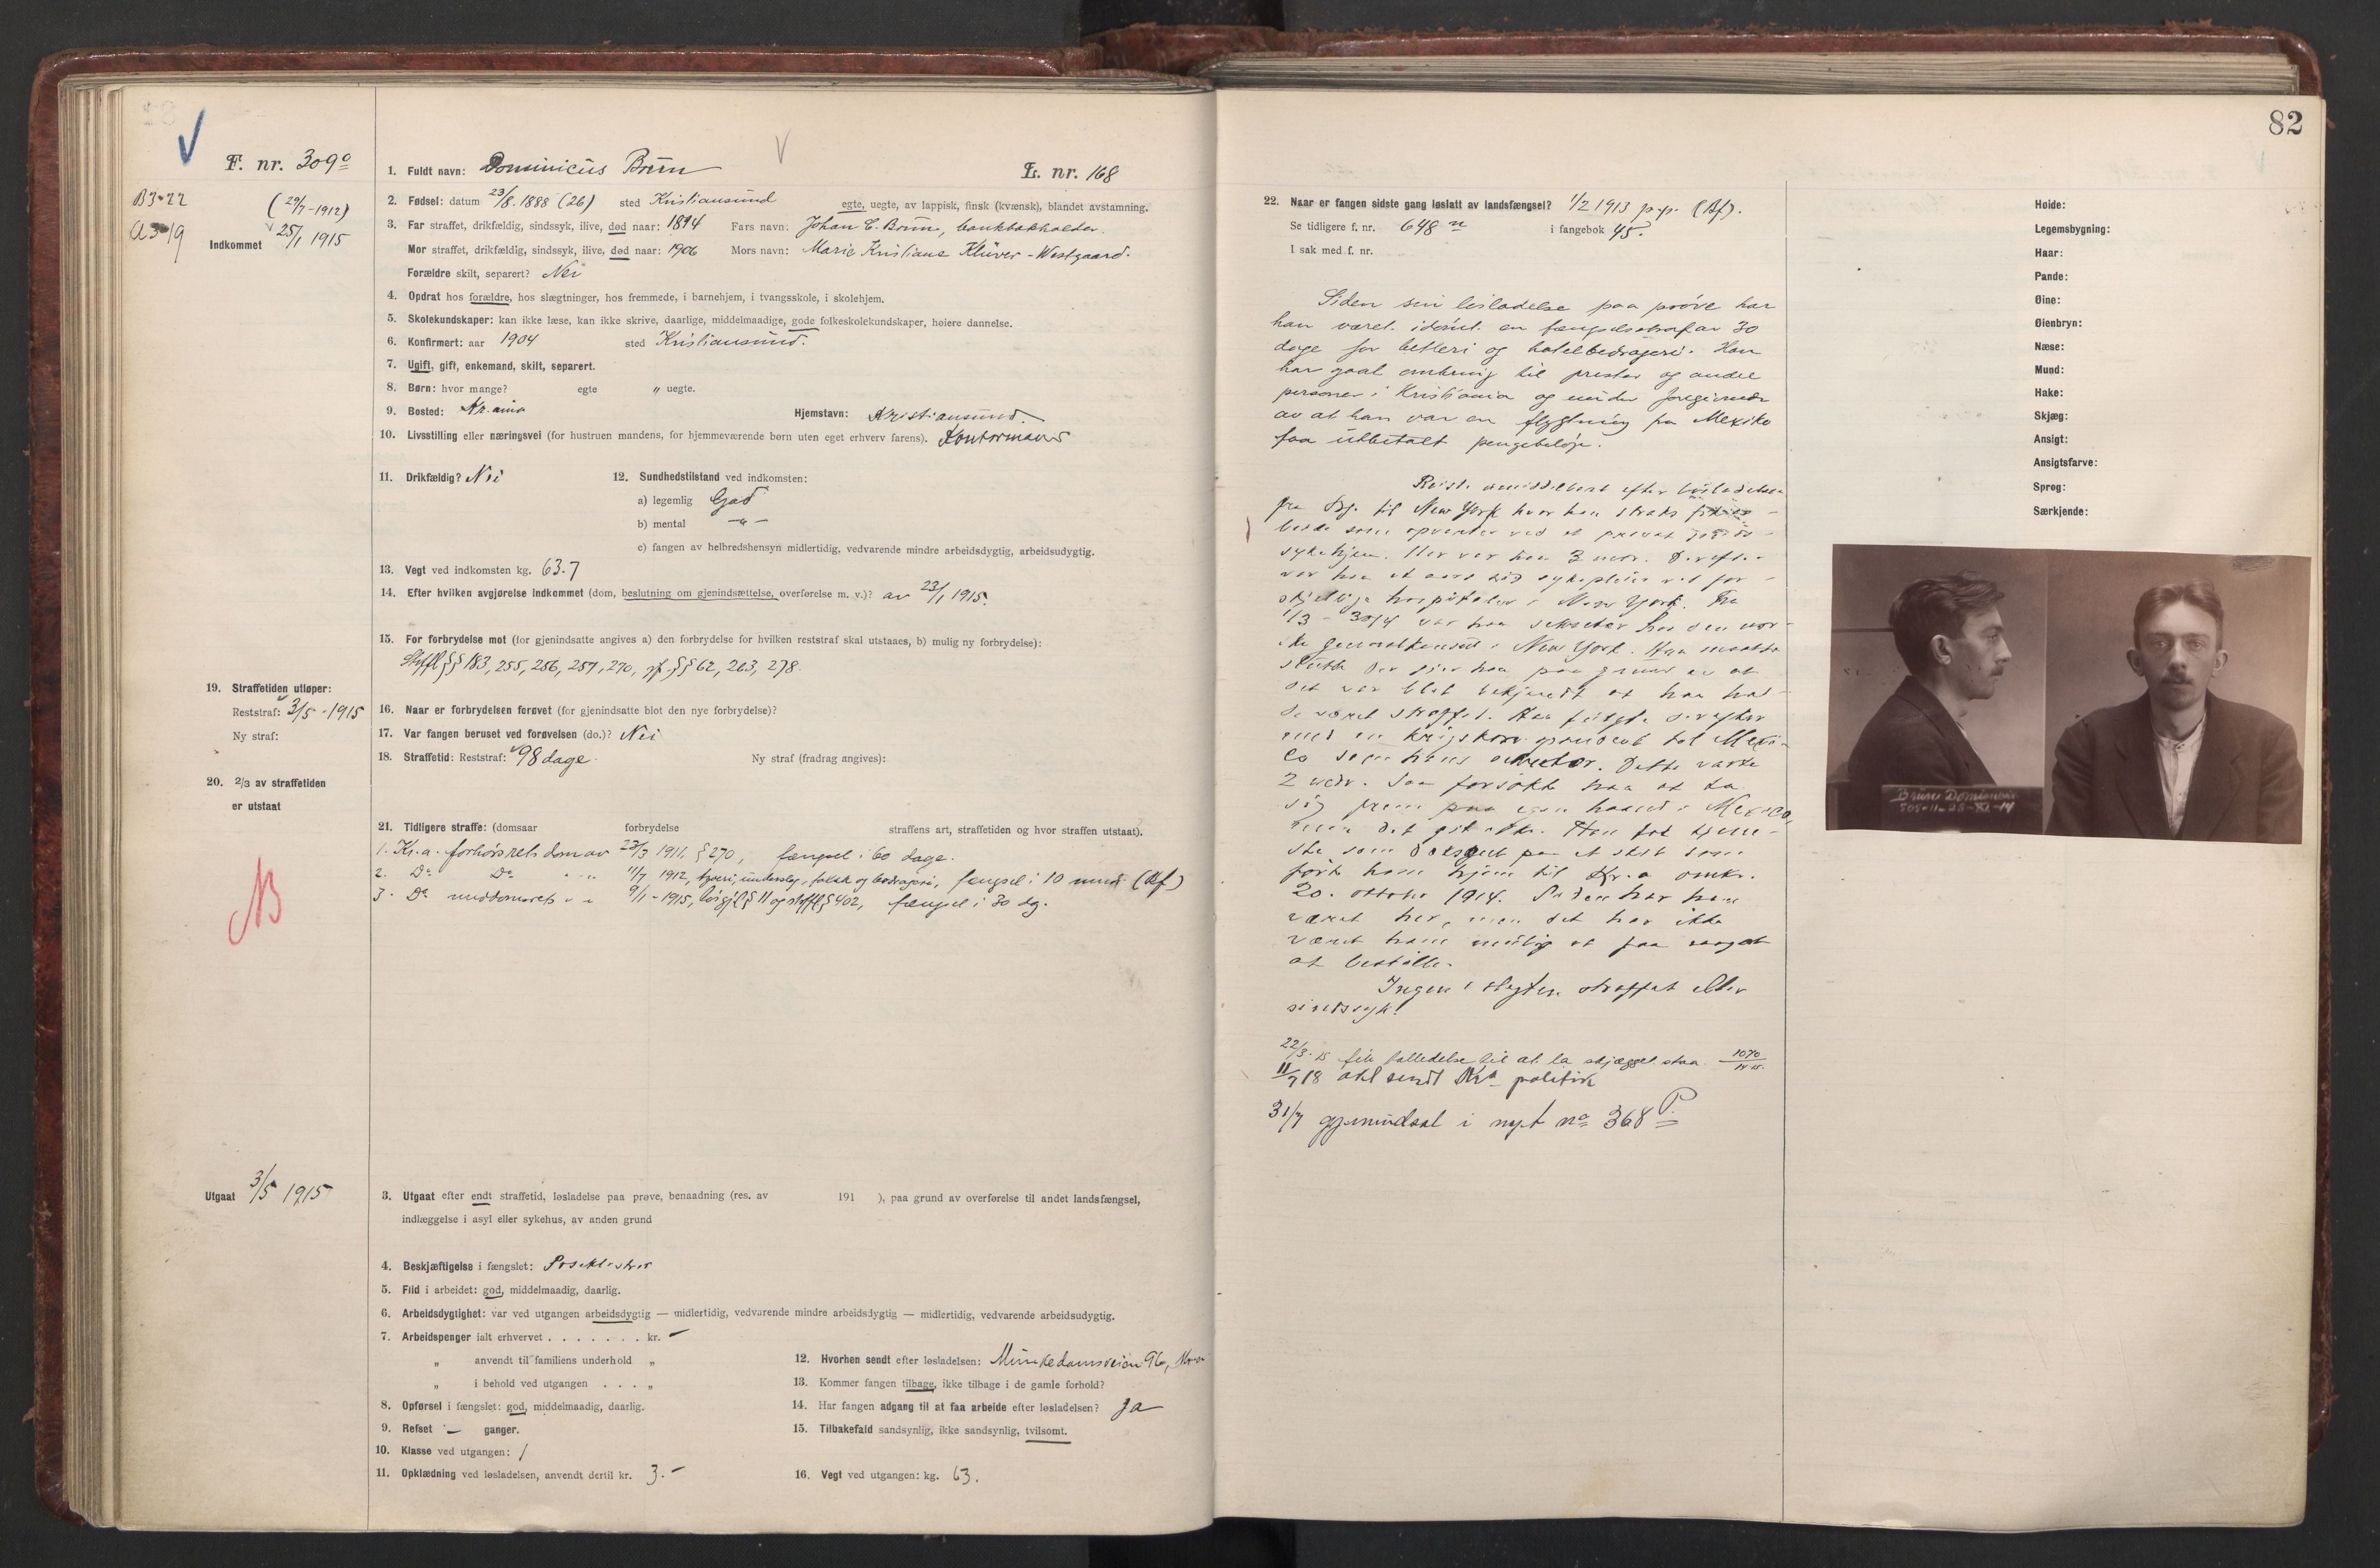 F. nr. 309º
B3-22
A3-19
(29/7-1912)
Indkommet 25/1 1915
1. Fuldt navn: Dominicus Brun
L. nr. 168
2. Fødsel: datum 23/8. 1888 (26) sted Kristiansund egte, uegte, av lappisk, finsk (kvænsk), blandet avstamning.
3. Far straffet, drikfældig, sindssyk, ilive, død naar: 1894 Fars navn: Johan C. Brun, bankbokholder.
Mor straffet, drikfældig, sindssyk, ilive, død naar: 1906 Mors navn: Marie Kristiane Klüver-Westgaard.
Forældre skilt, separert? Nei
4. Opdrat hos forældre, hos slægtninger, hos fremmede, i barnehjem, i tvangsskole, i skolehjem.
5. Skolekundskaper: kan ikke læse, kan ikke skrive, daarlige, middelmaadige, gode folkeskolekundskaper, høiere dannelse.
6. Konfirmert: aar 1904 sted Kristiansund.
7. Ugift, gift, enkemand, skilt, separert.
8. Børn: hvor mange? egte „ uegte.
9. Bosted: Kr.ania Hjemstavn: Kristiansund.
10. Livsstilling eller næringsvei (for hustruen mandens, for hjemmeværende børn uten eget erhverv farens). Kontormand
11. Drikfældig? Nei
12. Sundhedstilstand ved indkomsten:
a) legemlig God
b) mental —"—
c) fangen av helbredshensyn midlertidig, vedvarende mindre arbeidsdygtig, arbeidsudygtig.
13. Vegt ved indkomsten kg. 63.7
14. Efter hvilken avgjørelse indkommet (dom, beslutning om gjenindsættelse, overførelse m. v.)? av 23/1 1915.
15. For forbrydelse mot (for gjenindsatte angives a) den forbrydelse for hvilken reststraf skal utstaaes, b) mulig ny forbrydelse):
Strffl §§ 183, 255, 256, 257, 270, jf. §§ 62, 263, 278.
19. Straffetiden utløper:
Reststraf: 3/5 - 1915
Ny straf:
16. Naar er forbrydelsen forøvet (for gjenindsatte blot den nye forbrydelse)?
17. Var fangen beruset ved forøvelsen (do.)? Nei
18. Straffetid: Reststraf: 98 dage. Ny straf (fradrag angives):
20. 2/3 av straffetiden
er utstaat
21. Tidligere straffe: (domsaar forbrydelse straffens art, straffetiden og hvor straffen utstaat).
1. Kr.a. forhørsrets dom av 23/3 1911, § 270, fængsel i 60 dage.
2. Do Do " " 11/7 1912, tyveri, underslag, falsk og bedrageri, fængsel i 10 mndr (Bf)
3. Do meddomsrets " " 9/1-1915, løsgjl § 11 og strffl § 402, fængsel i 30 dg.
AB
Utgaat 3/5 1915
3. Utgaat efter endt straffetid, løsladelse paa prøve, benaadning (res. av 191 ), paa grund av overførelse til andet landsfængsel,
indlæggelse i asyl eller sykehus, av anden grund
4. Beskjæftigelse i fængslet: Poseklistrer
5. Flid i arbeidet: god, middelmaadig, daarlig.
6. Arbeidsdygtighet: var ved utgangen arbeidsdygtig — midlertidig, vedvarende mindre arbeidsdygtig — midlertidig, vedvarende arbeidsudygtig.
7. Arbeidspenger ialt erhvervet . . . . . . . kr. —
„ anvendt til familiens underhold „
„ i behold ved utgangen . . . „
8. Opførsel i fængslet: god, middelmaadig, daarlig.
9. Refset — ganger.
10. Klasse ved utgangen: 1
11. Opklædning ved løsladelsen, anvendt dertil kr. 3.-
12. Hvorhen sendt efter løsladelsen: Munkedamsveien 96,
13. Kommer fangen tilbage, ikke tilbage i de gamle forhold?
14. Har fangen adgang til at faa arbeide efter løsladelsen? Ja
15. Tilbakefald sandsynlig, ikke sandsynlig, tvilsomt.
16. Vegt ved utgangen: kg. 63.
82
22. Naar er fangen sidste gang løslatt av landsfængsel? 1/2 1913 p.p. (Bf).
Se tidligere f. nr. 648 i fangebok 45.
I sak med f. nr.
Siden sin løsladelse paa prøve har
han været idømt en fængselsstraf av 30
dage for betleri og hotelbedrageri. Han
har gaat omkring til prester og andre
personer i Kristiania og under foregivende
av at han var en flygtning fra Mexiko
faa utbetalt pengebeløp.
Reiste umiddelbart efter løsladelsen
fra Bg. til New York hvor han straks fik ar-
beide som opvarter ved et privat
sykehjem. Her var han 3 mdr. Derefter
var han et aars tid sykepleier ved for-
skjellige hospitaler i New York. Fra
1/3 - 30/4 var han sekretær hos den nor-
ske generalkonsul i New York. Han maatte
slutte der sier han paa grund av at
det var blit bekjendt at han had-
de været straffet. Han fulgte derefter
med en krigskorrespondent til Mexi-
co som hans sekretær. Dette varte
2 mdr. Saa forsøkte han at ta
sig frem paa egen haand i Mexico,
men det gik ikke. Han fik tjene-
ste som paa et skib som
førte ham hjem til Kr.a omkr.
20. oktober 1914. Siden har han
været her, men det har ikke
været ham mulig at faa noget
at bestille.
Ingen i slegten straffet eller
sindssyk.
22/3-15 fik tilladelse til at la skjægget staa 1070/
11/7 18 akt sendt Kra politik
31/7 gjenindsat i nyt no 368 P.
Høide:
Legemsbygning:
Haar:
Pande:
Øine:
Øienbryn:
Næse:
Mund:
Hake:
Skjæg:
Ansigt:
Ansigtsfarve:
Sprog:
Særkjende:
Brun Dominicus
505-11-28-XI-14